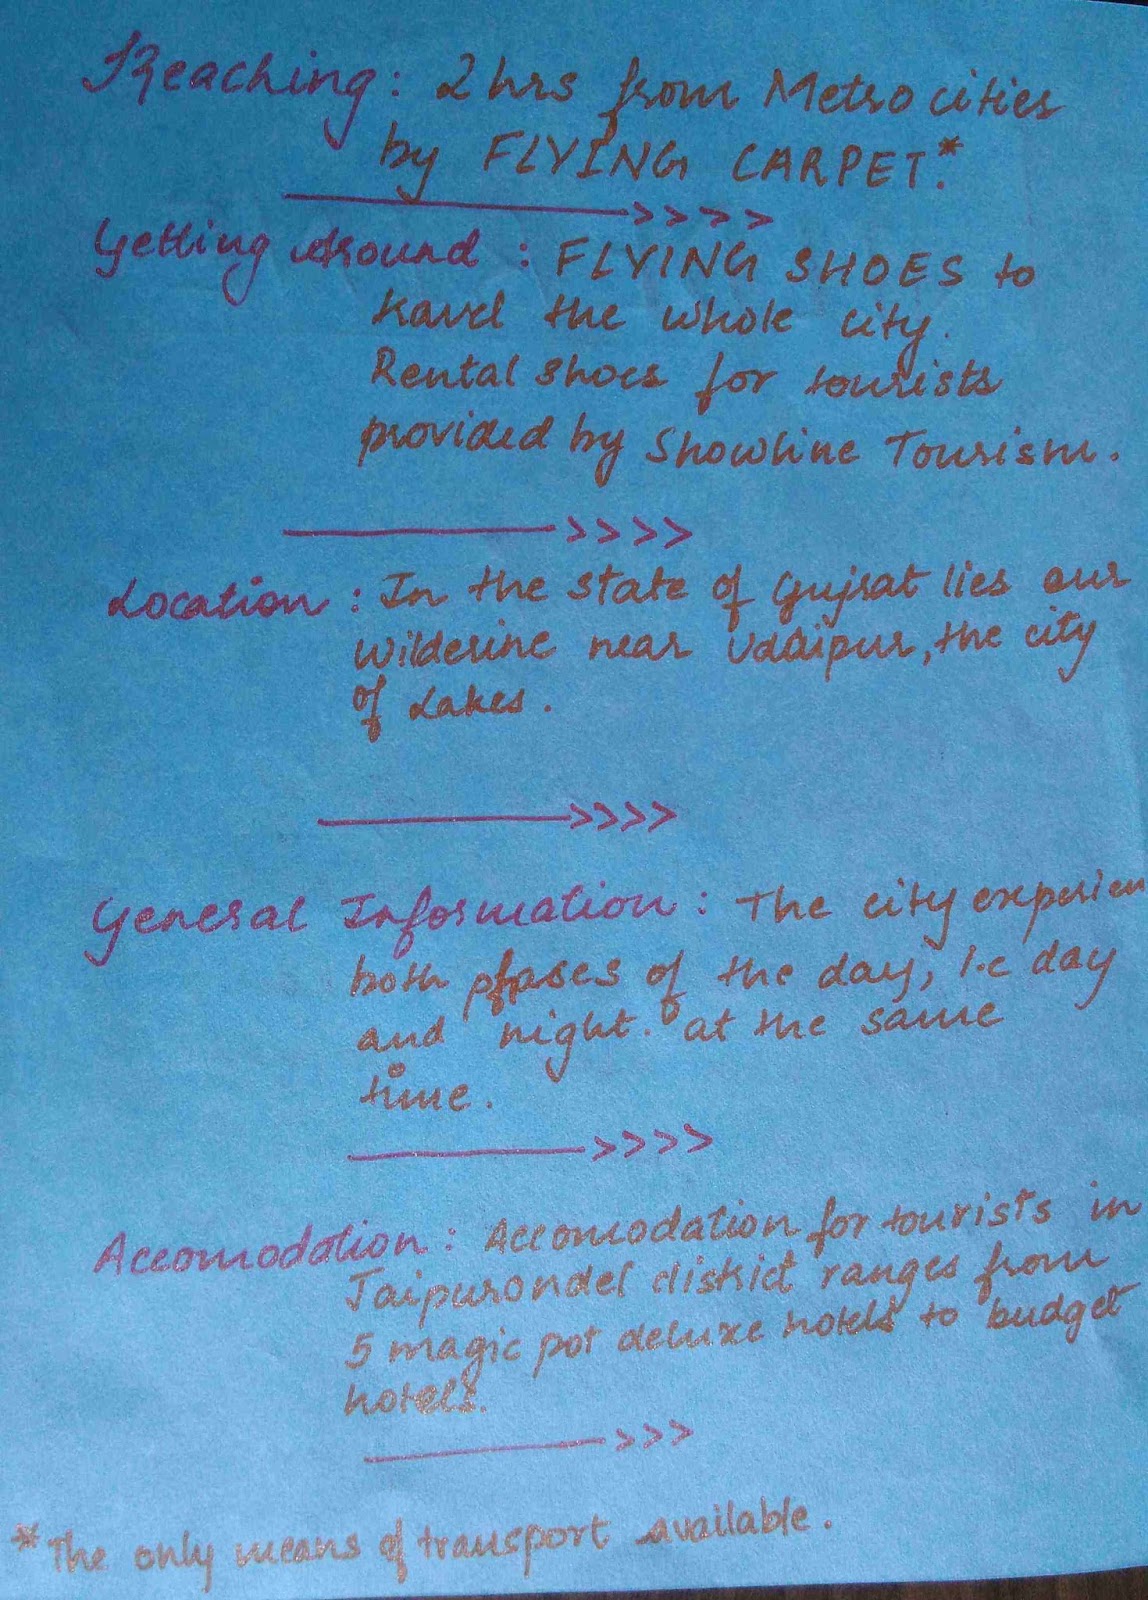 Reaching: 2 hrs from Metro cities
by FLYING CARPET.*
Getting Around: FLYING SHOES to
travel the whole city.
Rental shoes for tourists
provided by Showline Tourism.
Location: In the state of Gujrat lies our
Wilderine near Udaipur, the city
of Lakes.
General Information: The city experien
both phases of the day, i.e day
and night. at the same
time.
Accomodation: Accomodation for tourists in
Jaipurondel district ranges from
5 magic pot deluxe hotels to budget
hotels.
*The only means of transport available.